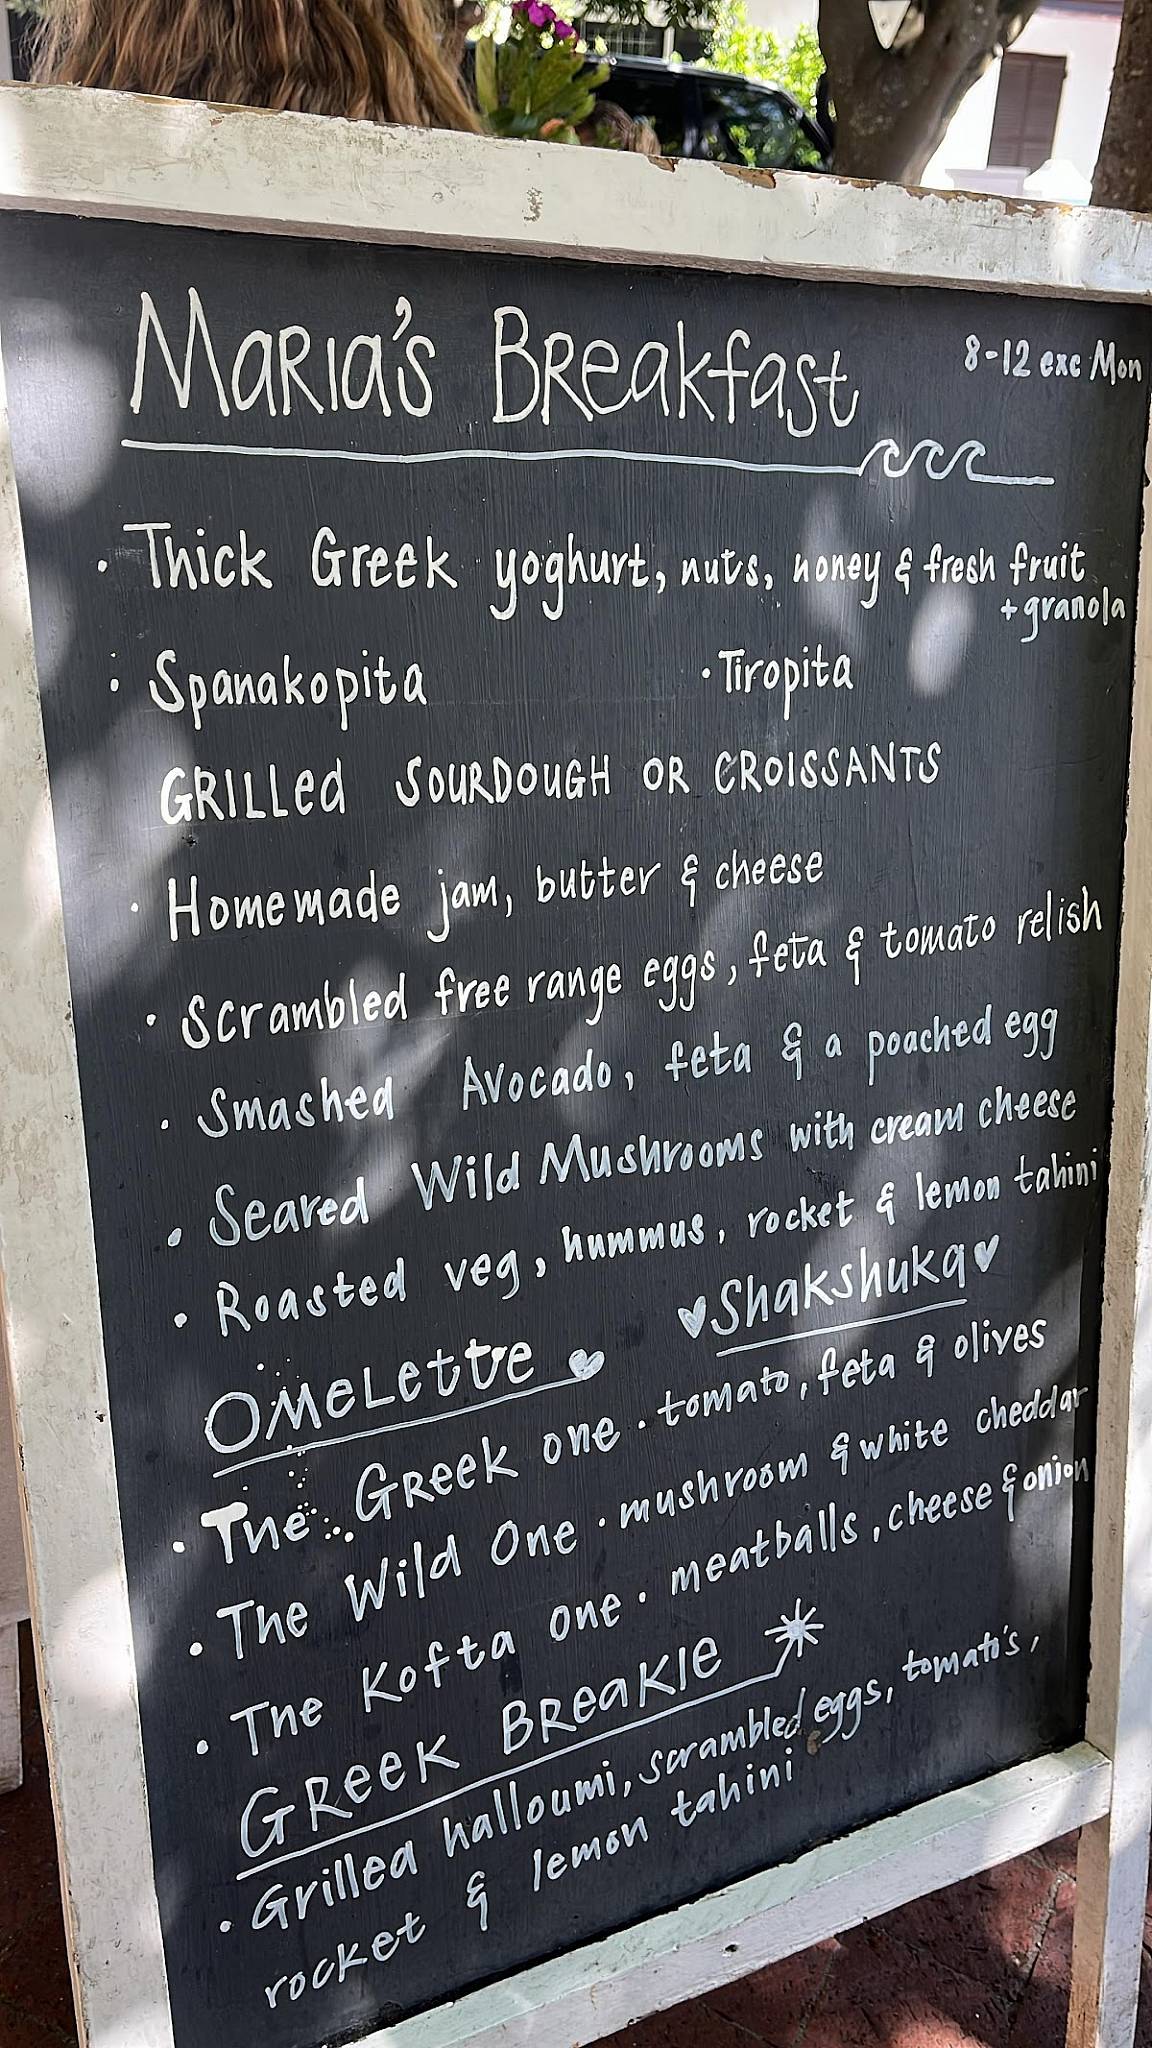 MaRIa's BReakfast
8-12 exc Mon
• Thick Greek yoghurt, nuts, honey & fresh fruit
+granola
• Spanakopita
• Tiropita
GRILLed SOURDOUGH OR CROISSANTS
• Homemade jam, butter & cheese
• Scrambled free range eggs, feta & tomato relish
• Smashed Avocado, feta & a poached egg
• Seared Wild Mushrooms with cream cheese
• Roasted veg, hummus, rocket & lemon tahini
♥Shakshuka♥
OMeLette ♥
• The GReek one • tomato, feta & olives
• The Wild One • mushroom & white cheddar
• The Kofta one • meatballs, cheese & onion
GReeK BReaKIe
• Grilled halloumi, scrambled eggs, tomato's,
rocket & lemon tahini